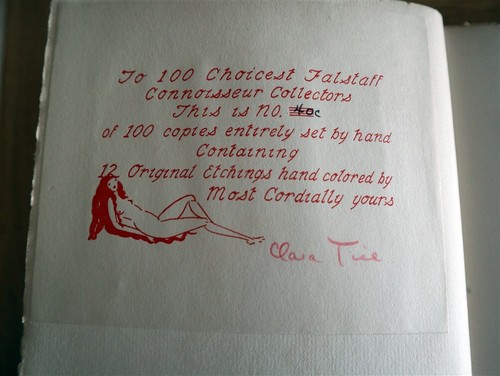 To 100 Choicest Falstaff
Connoisseur Collectors
This is NO.
of 100 copies entirely set by hand
Containing
12 Original Etchings hand colored by
Most Cordially yours
Clara Tice